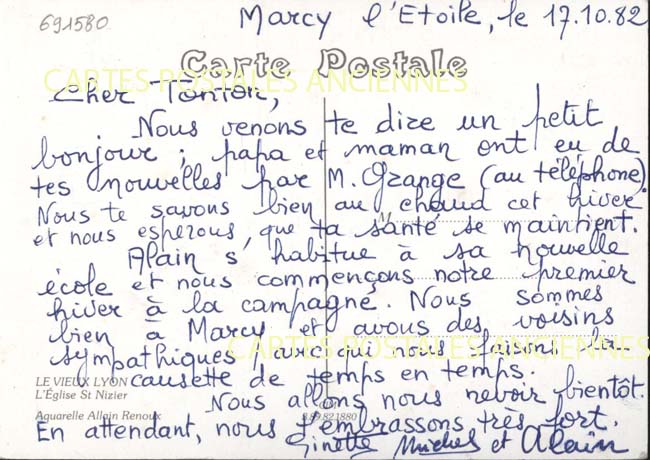 691580
Marcy l'Etoile, le 17.10.82
Carte Postale
CARTES POSTALES ANCIENNES
Cher Tonton,
Nous venons te dire un petit
bonjour ; papa et maman ont eu de
tes nouvelles par M. Grange (au téléphone).
Nous te savons bien au chaud cet hiver
et nous esperons, que ta santé se maintient.
Alain s'habitue à sa nouvelle
école et nous commençons notre premier
hiver à la campagne. Nous sommes
bien à Marcy et avons des voisins
sympathiques, avec qui nous faisons la
CARTES POSTALES ANCIENNES
causette de temps en temps.
LE VIEUX LYON
L'Église St Nizier
Nous allons nous revoir bientôt.
Aquarelle Allain Renoux
En attendant, nous t'embrassons très fort.
Ginette Michel et Alain